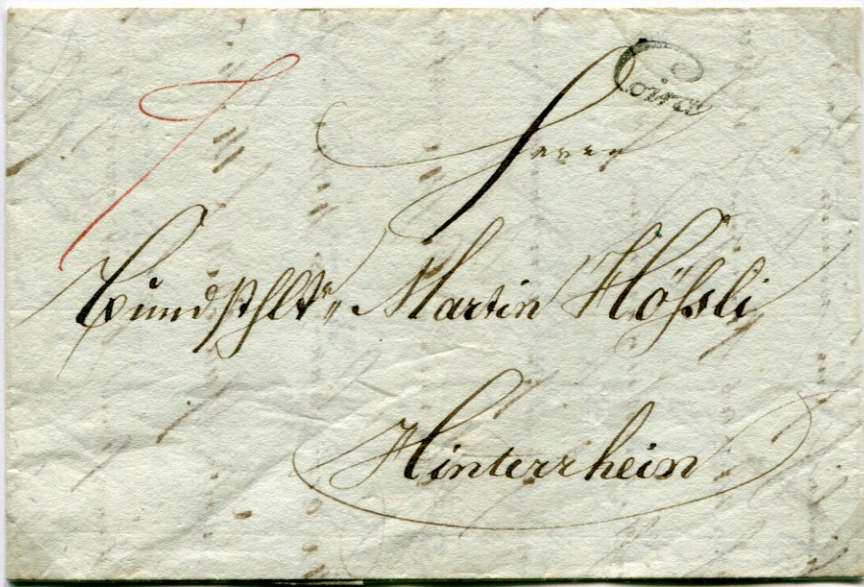 Coira
Herrn
Bundsthltr Martin Hößli
Hinterrhein